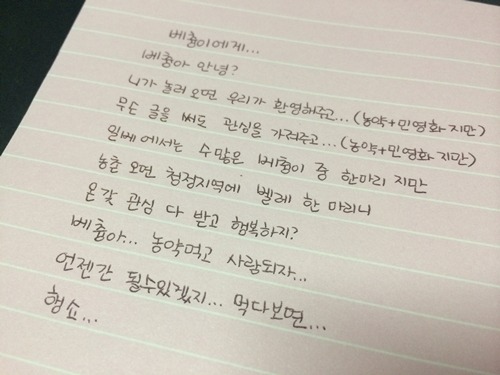 베츙이에게...
베츙아 안녕?
니가 놀러오면 우리가 환영해주고...(농약+민영화지만)
무슨 글을 써도 관심을 가져주고...(농약+민영화지만)
일베에서는 수많은 베츙이 중 한마리 지만
농촌 오면 청정지역에 벌레 한 마리니
온갖 관심 다 받고 행복하지?
베츙아... 농약먹고 사람되자...
언젠간 될수있겠지... 먹다보면...
형쇼...